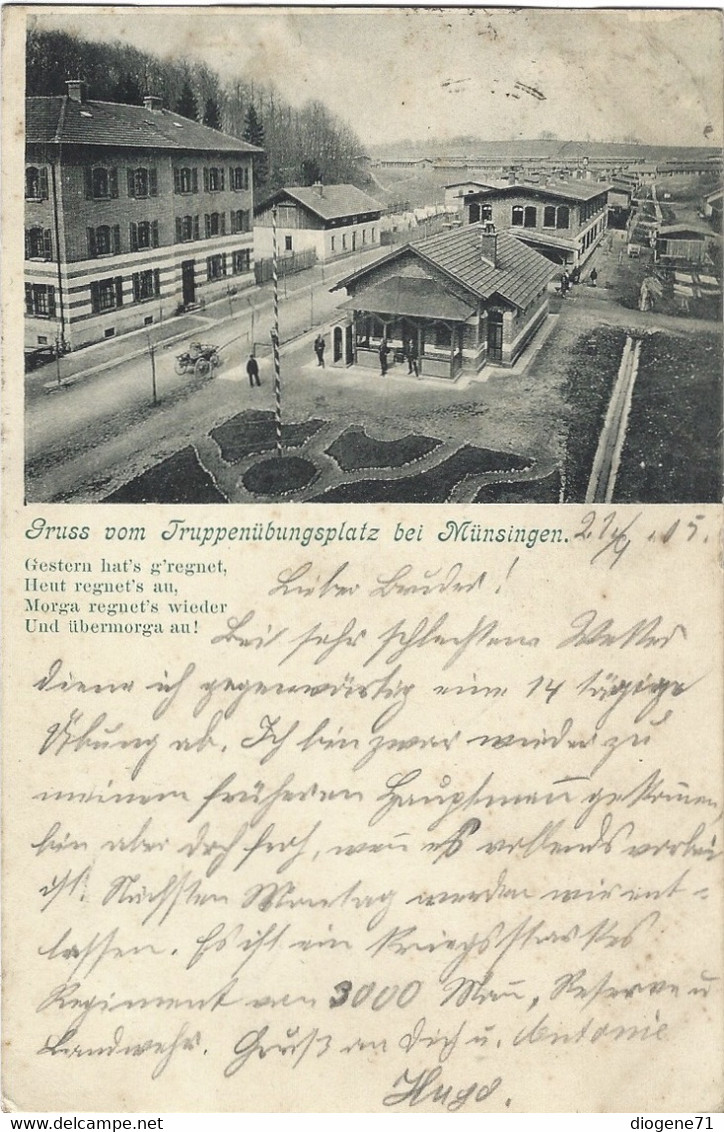 Gruss vom Truppenübungsplatz bei Münsingen.
Gestern hat's g'regnet,
Heut regnet's au,
Morga regnet's wieder
Und übermorga au!
Lieber Bruder!
Bei sehr schlechtem Wetter
diene ich gegenwärtig eine 14 tägige
Übung ab. Ich bin zwar wieder zu
meinem früheren Hauptmann gekommen,
bin aber doch froh, wenn es vollends vorbei
ist. Nächsten Montag werden wir ent-
lassen. Es ist ein kriegsstarkes
Regiment von 3000 Mann, Reserve u
Landwehr. Gruß an Dich u. Antonie
Hugo.
diogene71